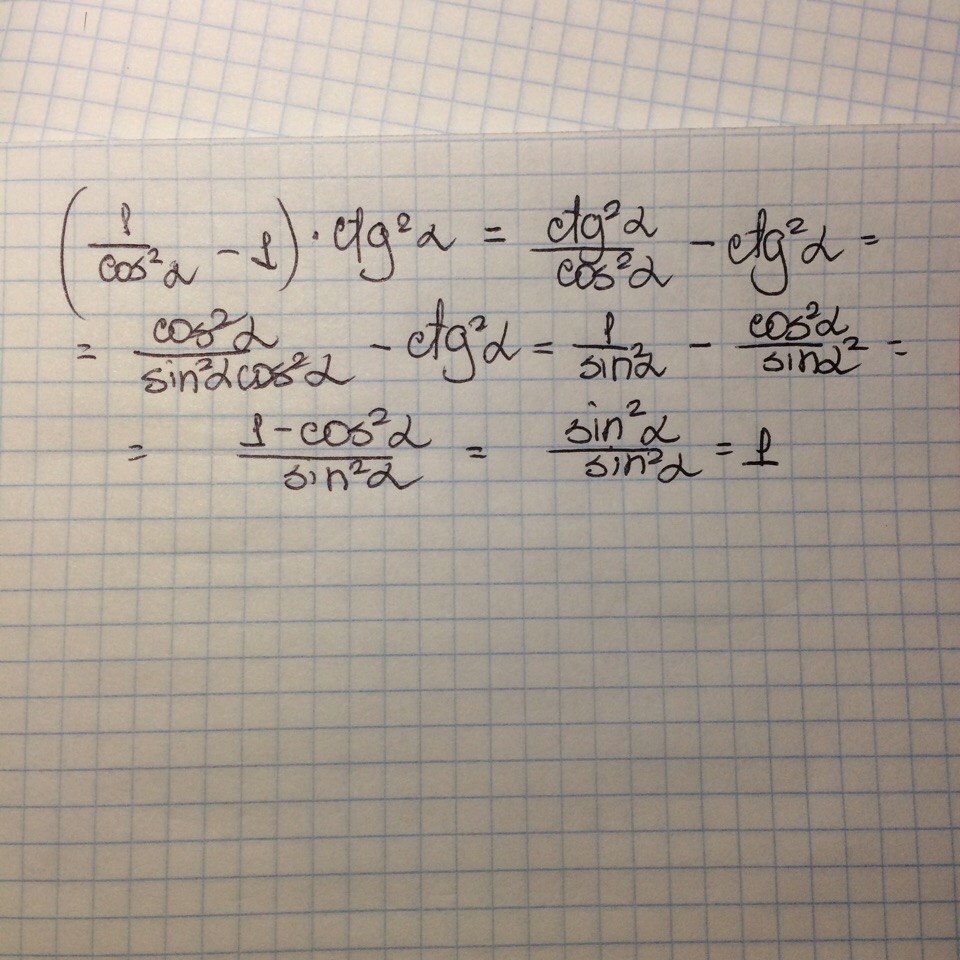 (1/cos²α - 1) · ctg²α = ctg²α/cos²α - ctg²α =
= cos²α/sin²α cos²α - ctg²α = 1/sin²α - cos²α/sinα² =
= 1-cos²α/sin²α = sin²α/sin²α = 1